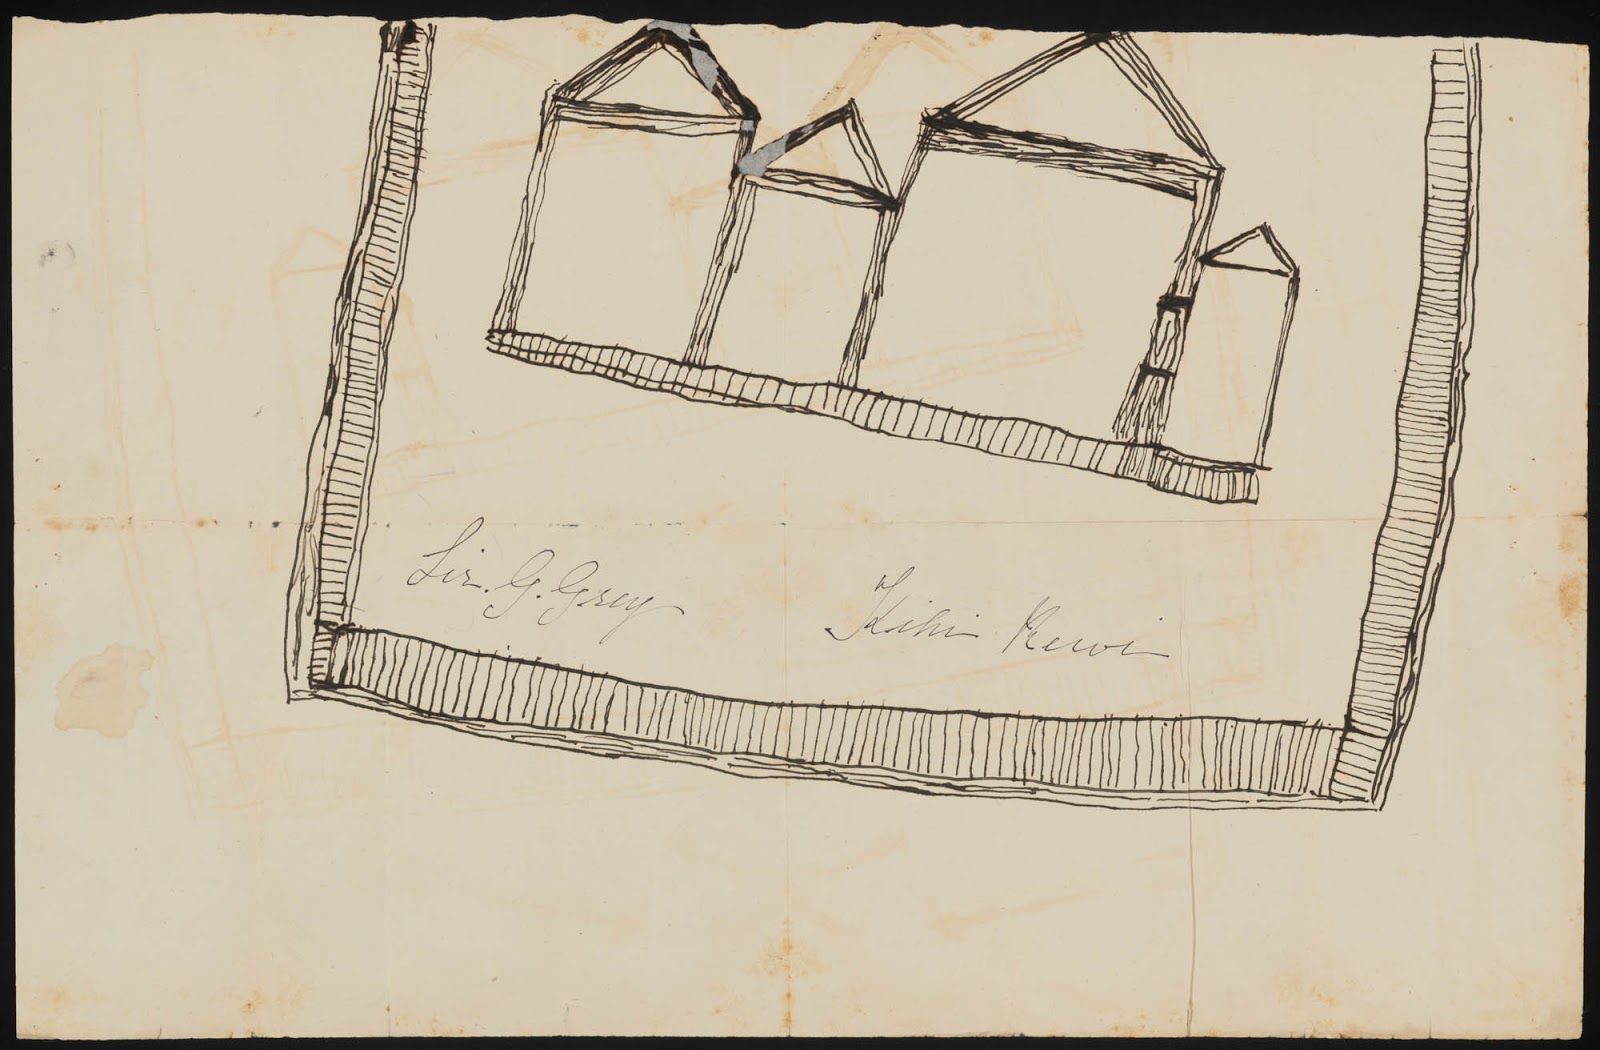 Sir. G. Grey
Kihi Rewi